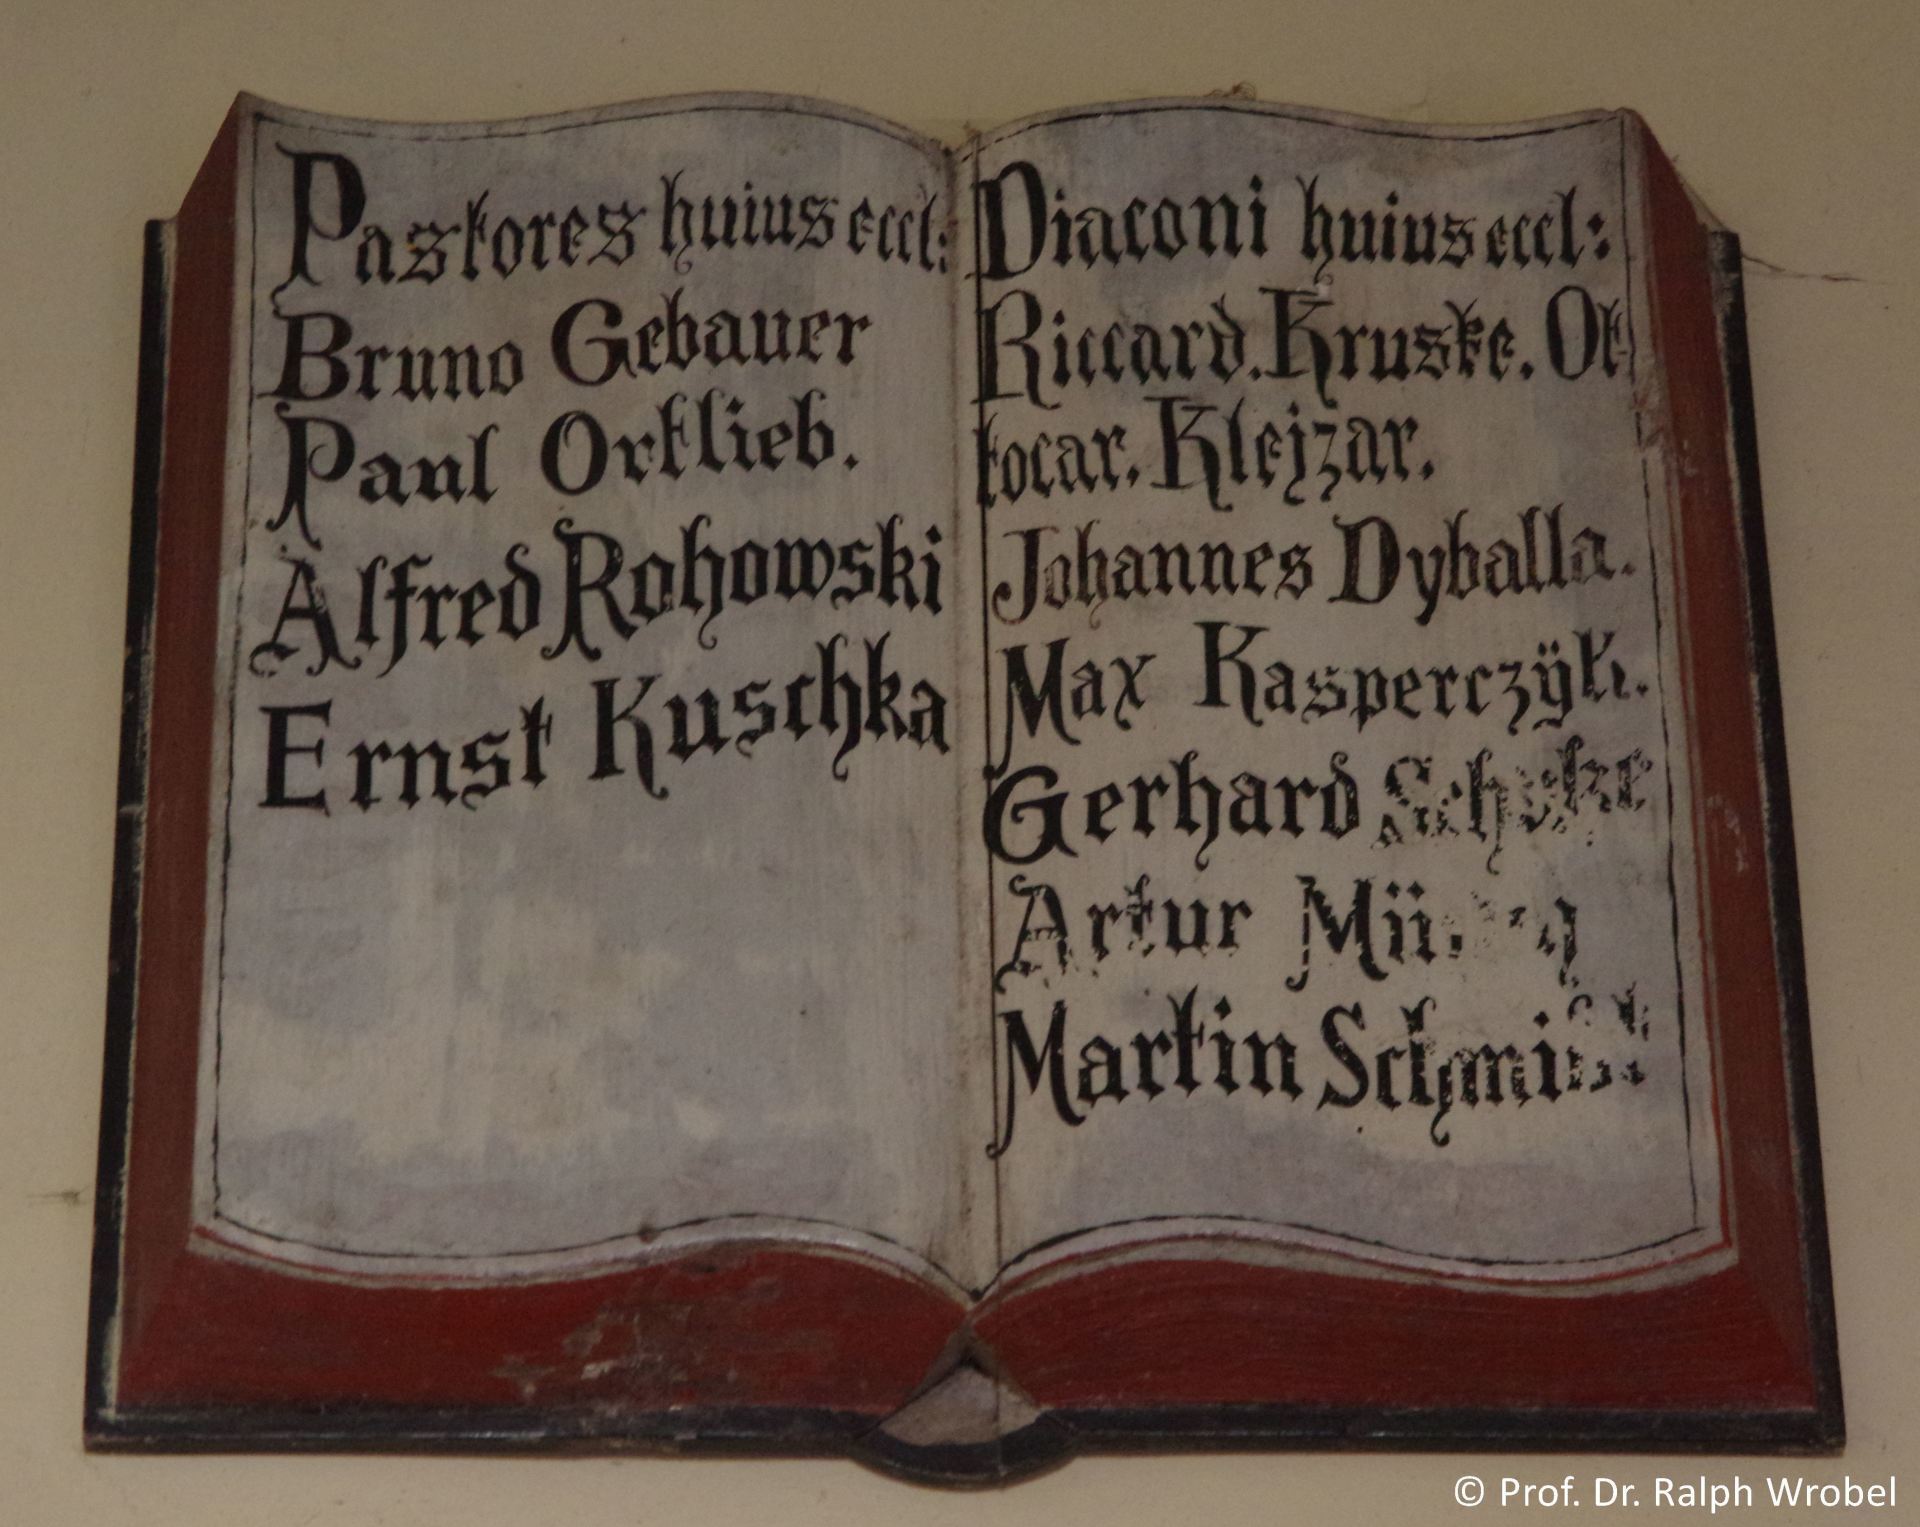 Pastores huius eccl:
Bruno Gebauer
Paul Ortlieb.
Alfred Rohowski
Ernst Kuschka
Diaconi huius eccl:
Riccard. Kruske. Ot-
tocar. Klejzar.
Johannes Dyballa.
Max Kasperczÿk.
Gerhard
Artur
Martin Schmidt
© Prof. Dr. Ralph Wrobel